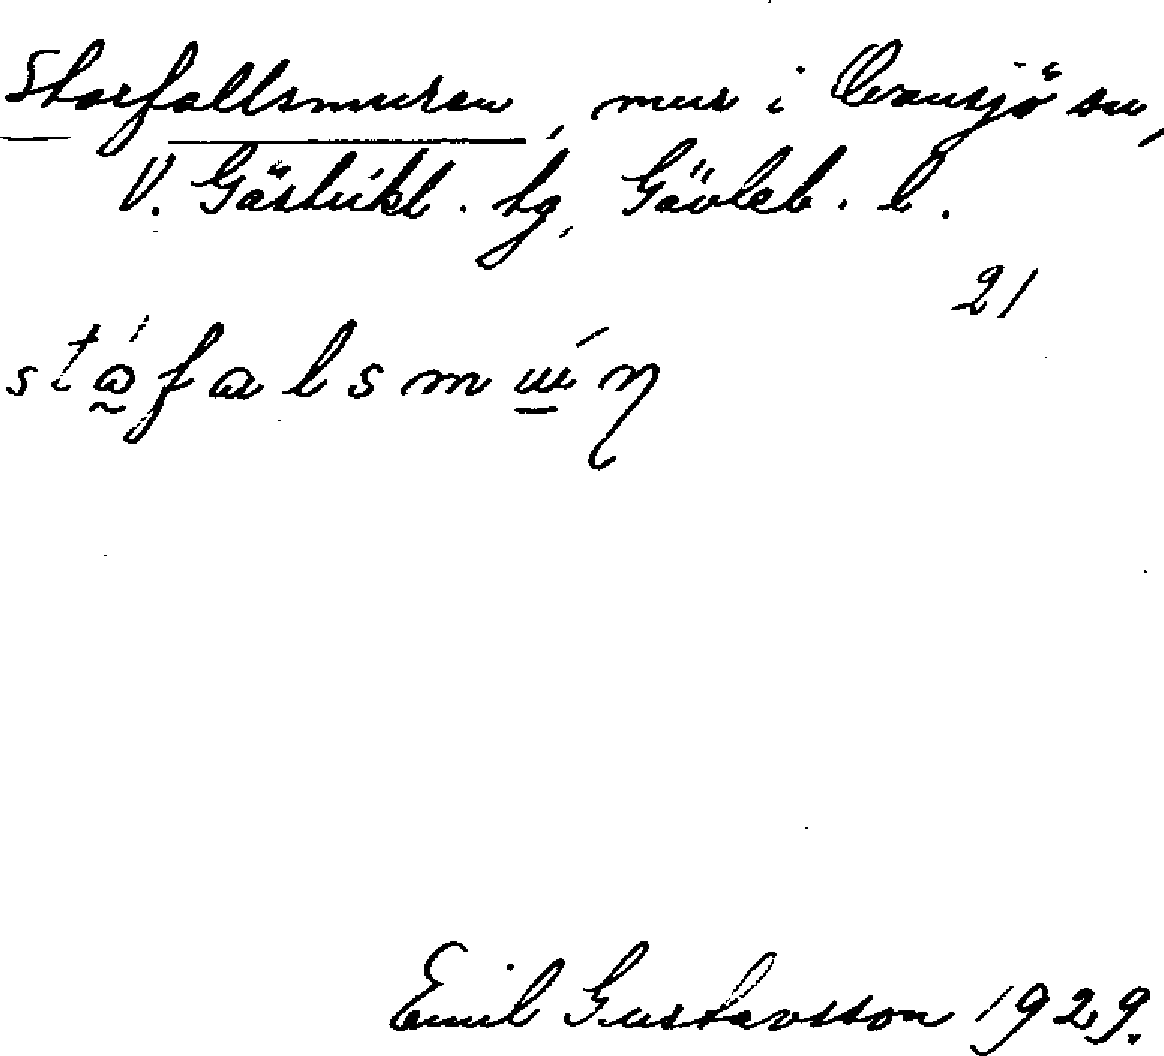 Storfallsmuren, mur i Ovansjö sn,
V. Gästrikl. tg, Gävleb. l.
21
stǻfalsmɯ́ŋ
Emil Gustavsson 1929.